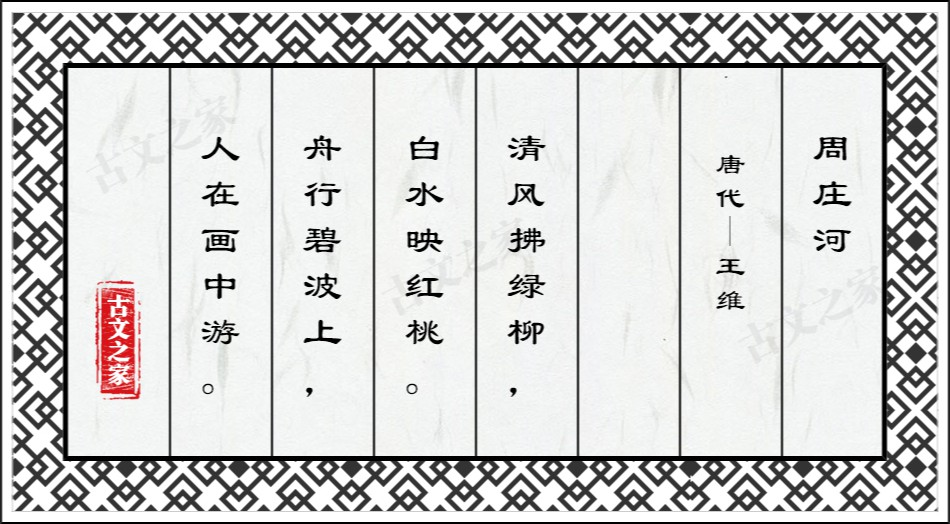 周庄河
唐代—王维
清风拂绿柳，
白水映红桃。
舟行碧波上，
人在画中游。
古文之家
古文之家
古文之家
古文之家